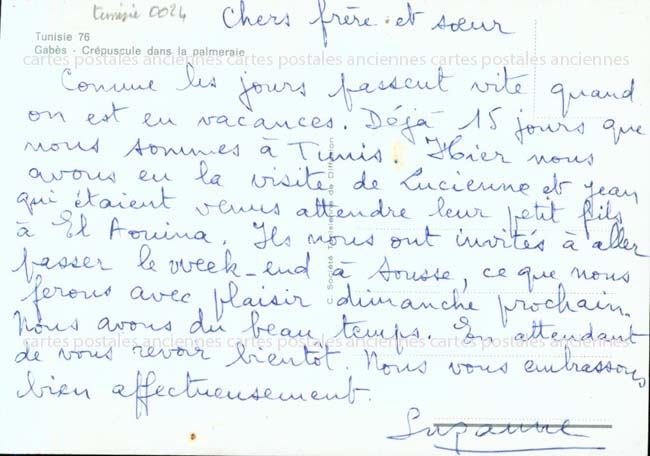 tunisie 0024
Chers frère et sœur
Tunisie 76
Gabès - Crépuscule dans la palmeraie
cartes postales anciennes cartes postales anciennes cartes postales anciennes
Comme les jours passent vite quand
on est en vacances. Déjà 15 jours que
nous sommes à Tunis. Hier nous
avons eu la visite de Lucienne et Jean
qui étaient venus attendre leur petit fils
à El Aouina. Ils nous ont invités à aller
passer le week-end à Sousse, ce que nous
ferons avec plaisir dimanche prochain.
Nous avons du beau temps. En attendant
cartes postales anciennes cartes postales anciennes cartes postales anciennes
de vous revoir bientôt. Nous vous embrassons
bien affectueusement.
Suzanne
C. Société de Diffusion